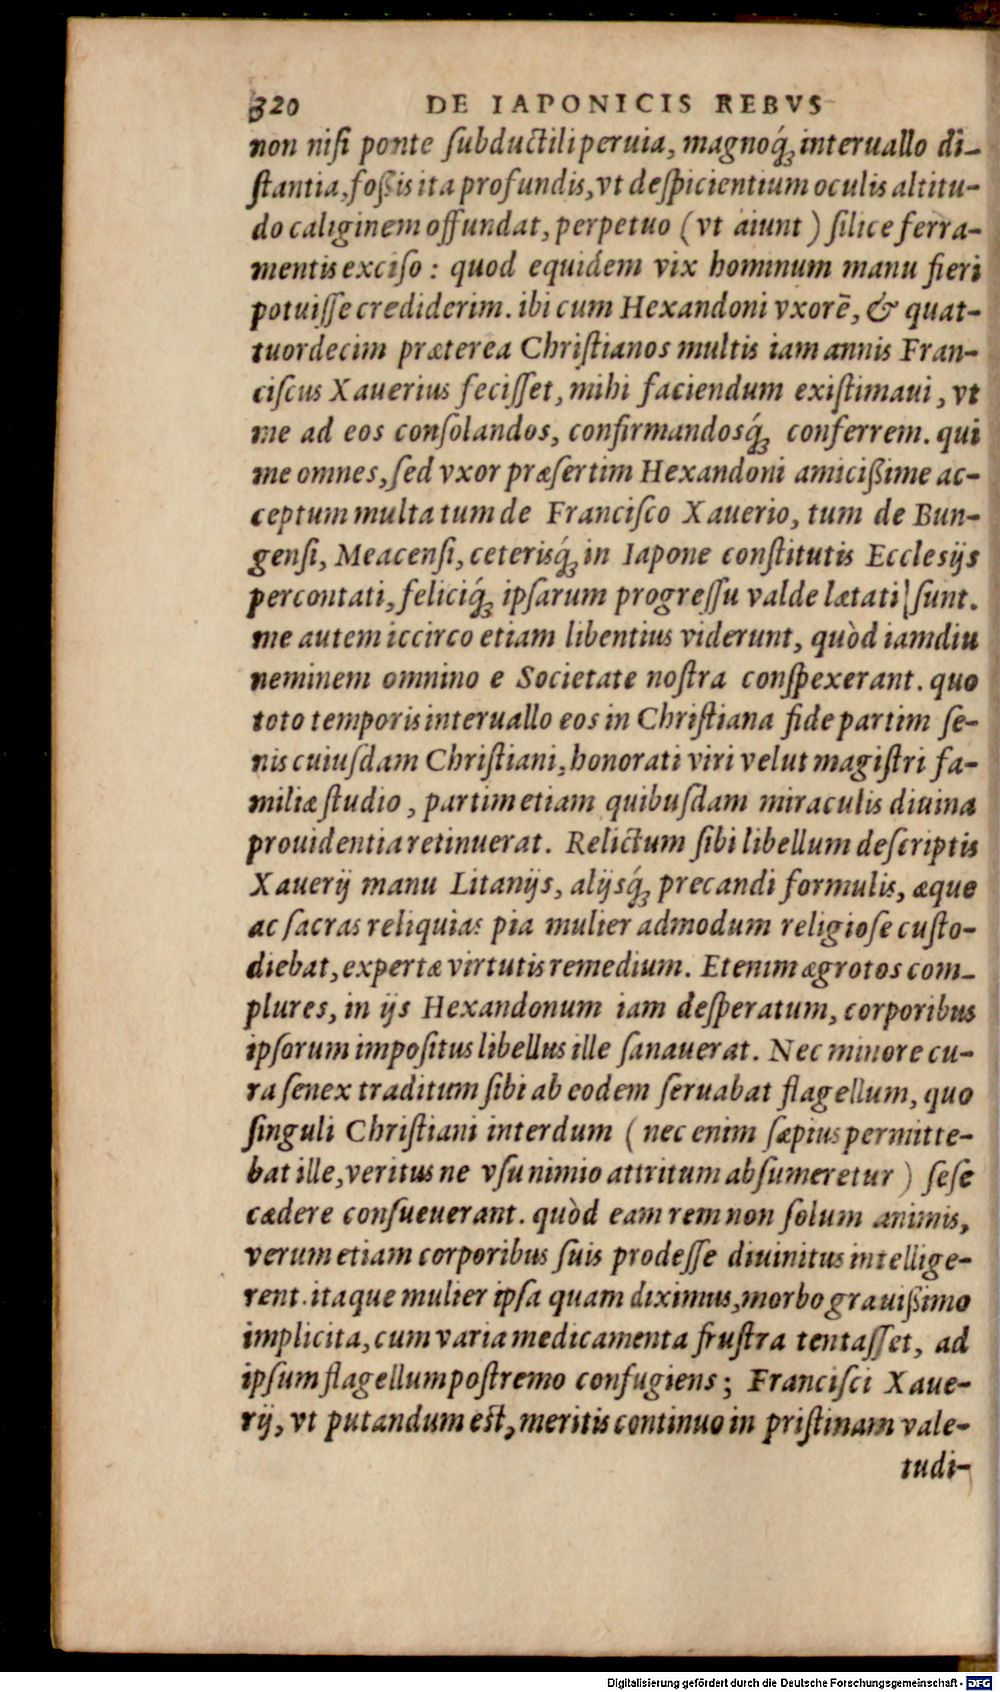 320 DE IAPONICIS REBVS
non nisi ponte subductili peruia, magnoq́; interuallo di-
stantia, foßis ita profundis, vt despicientium oculis altitu-
do caliginem offundat, perpetuo (vt aiunt) silice ferra-
mentis exciso: quod equidem vix hominum manu fieri
potuisse crediderim. ibi cum Hexandoni vxorē, & quat-
tuordecim præterea Christianos multis iam annis Fran-
ciscus Xauerius fecisset, mihi faciendum existimaui, vt
me ad eos consolandos, confirmandosq́; conferrem. qui
me omnes, sed vxor præsertim Hexandoni amicißime ac-
ceptum multa tum de Francisco Xauerio, tum de Bun-
gensi, Meacensi, ceterisq́; in Iapone constitutis Ecclesijs
percontati, feliciq́; ipsarum progressu valde lætati sunt.
me autem iccirco etiam libentius viderunt, quòd iamdiu
neminem omnino e Societate nostra conspexerant. quo
toto temporis interuallo eos in Christiana fide partim se-
nis cuiusdam Christiani, honorati viri velut magistri fa-
miliæ studio, partim etiam quibusdam miraculis diuina
prouidentia retinuerat. Relictum sibi libellum descriptis
Xauerij manu Litanijs, alijsq́; precandi formulis, æque
ac sacras reliquias pia mulier admodum religiose custo-
diebat, expertæ virtutis remedium. Etenim ægrotos com-
plures, in ijs Hexandonum iam desperatum, corporibus
ipsorum impositus libellus ille sanauerat. Nec minore cu-
ra senex traditum sibi ab eodem seruabat flagellum, quo
singuli Christiani interdum (nec enim sæpius permitte-
bat ille, veritus ne vsu nimio attritum absumeretur) sese
cædere consueuerant. quòd eam rem non solum animis,
verum etiam corporibus suis prodesse diuinitus intellige-
rent. itaque mulier ipsa quam diximus, morbo grauißimo
implicita, cum varia medicamenta frustra tentasset, ad
ipsum flagellum postremo confugiens; Francisci Xaue-
rij, vt putandum est, meritis continuo in pristinam vale-
tudi-
Digitalisierung gefördert durch die Deutsche Forschungsgemeinschaft - DFG